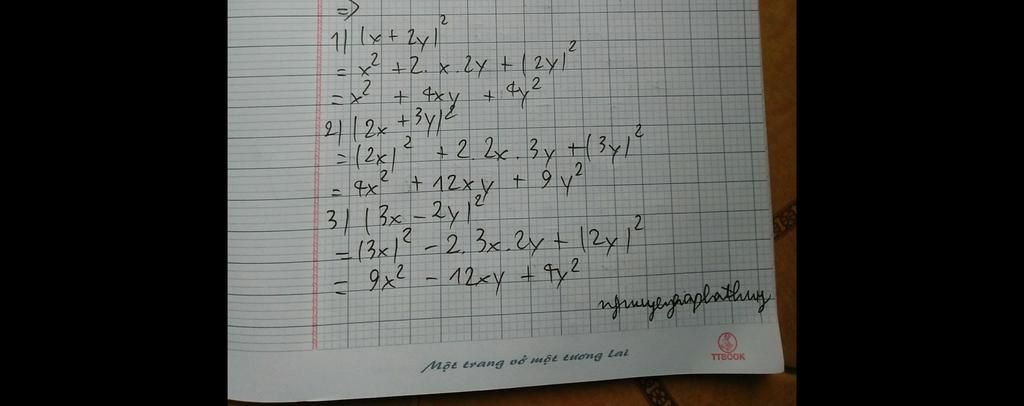 =>
1) (x + 2y)²
= x² + 2. x . 2y + (2y)²
= x² + 4xy + 4y²
2) (2x + 3y)²
= (2x)² + 2. 2x . 3y + (3y)²
= 4x² + 12xy + 9y²
3) (3x - 2y)²
= (3x)² - 2. 3x. 2y + (2y)²
= 9x² - 12xy + 4y²
Một trang vở một tương lai
TTBOOK